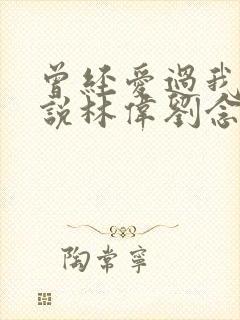 曾経愛過我
説林偉劉念
陶常寧